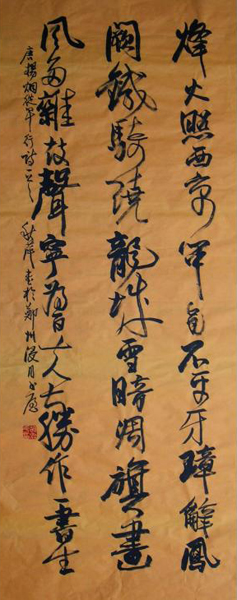 烽火照西京心中自不平牙璋辭鳳
闕鐵騎繞龍城雪暗凋旗畫
風多雜鼓聲寧為百夫長勝作一書生
唐楊炯從軍行詩一首 書於鄭州